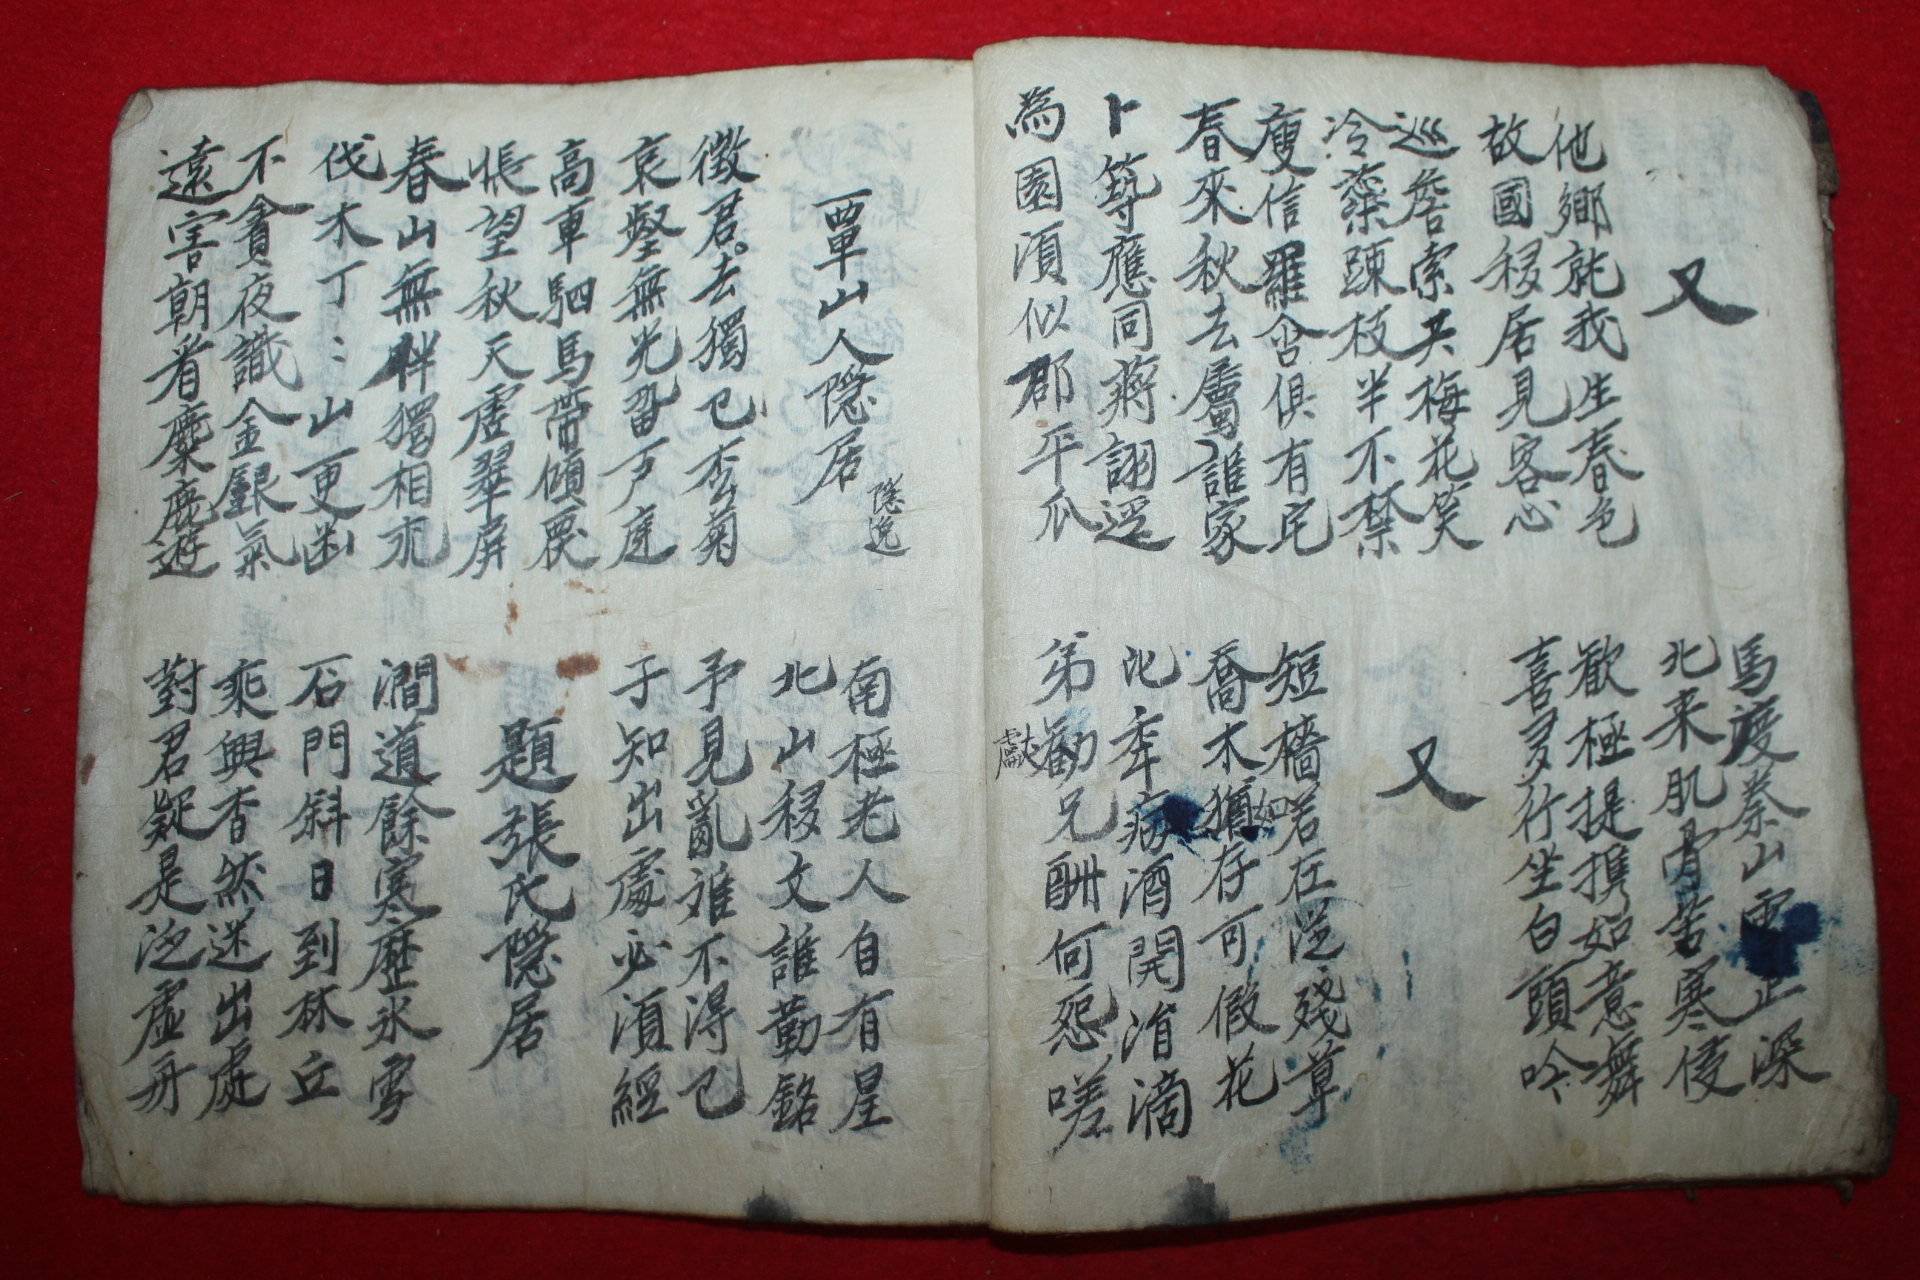 又
馬渡秦山雪正深
北来肌骨苦寒侵
他鄉就我生春色
故國移居見客心
歡極提携如意舞
喜多行坐白頭吟
巡簷索共梅花笑
冷蘂踈枝半不禁
又
庾信羅含俱有宅
春來秋去屬誰家
短檣若在從殘草
如
喬木猶存可假花
卜築應同蔣詡逕
為園須似郡平瓜
比年病酒開涓滴
弟勸兄酬何怨嗟
獻
覃山人隱居
隱逸
南極老人自有星
北山移文誰勤銘
徵君已去獨松菊
哀壑無光留戶庭
予見亂離不得已
子知出處必須經
高車駟馬帶傾覆
悵望秋天虛翠屏
題張氏隱居
春山無伴獨相求
伐木丁〻山更幽
澗道餘寒歷氷雪
石門斜日到林丘
不貪夜識金銀氣
遠害朝看麋鹿遊
乘興杳然迷出處
對君疑是泛虛舟